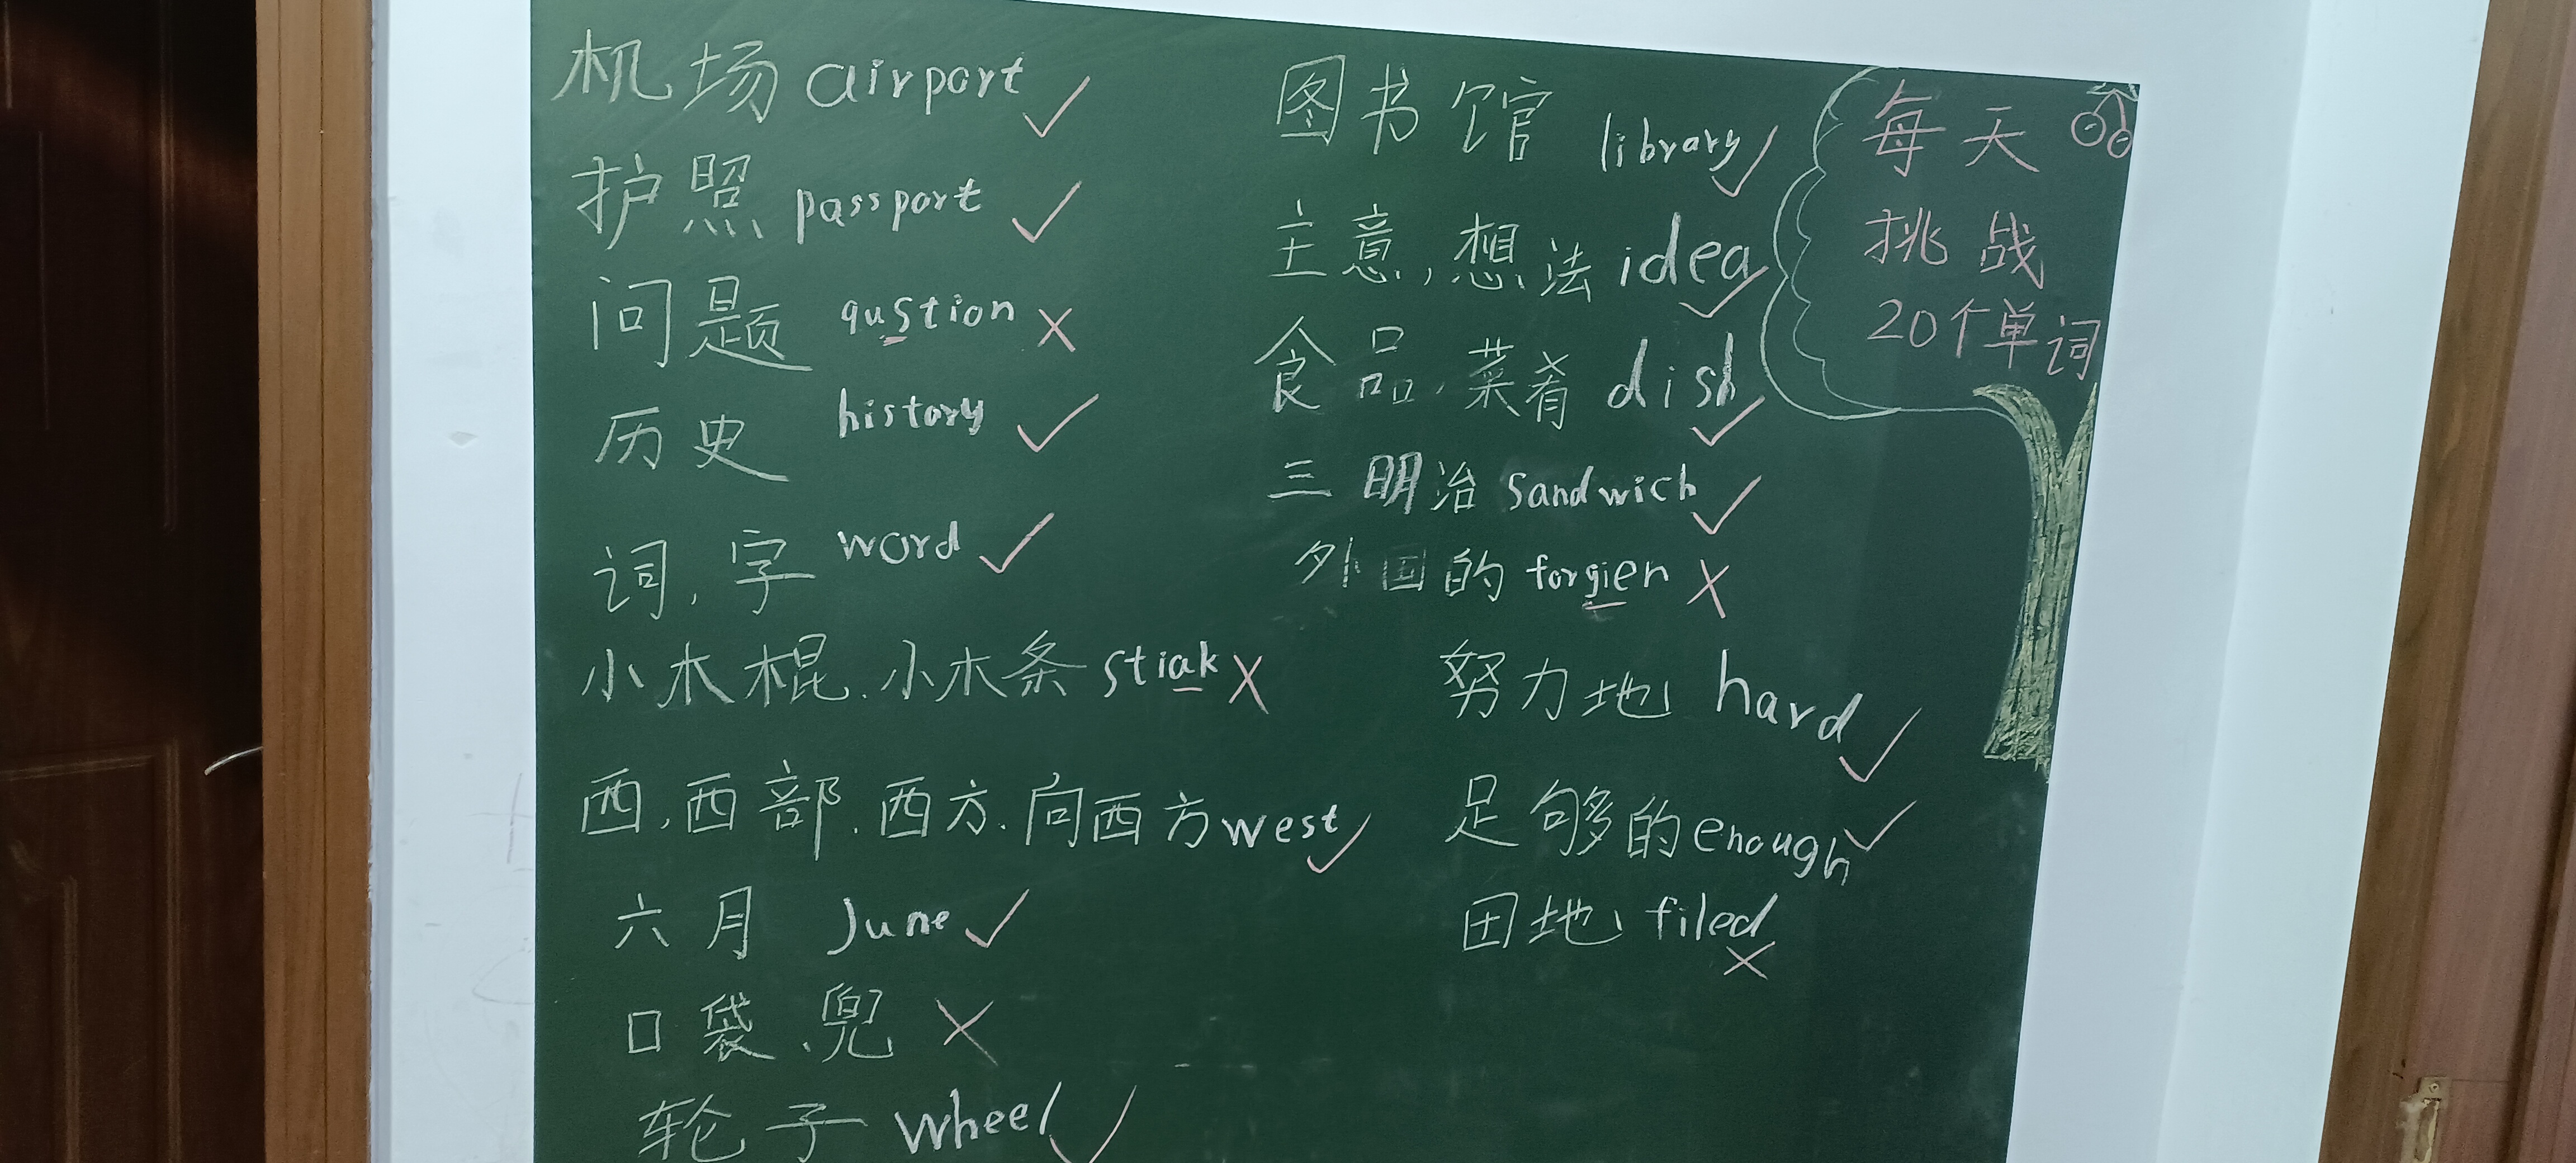 机场 airport
护照 passport
问题 qustion
历史 history
词,字 word
小木棍.小木条 stiak
西,西部.西方.向西方 west
六月 June
口袋、兜
轮子 wheel
图书馆 library
主意,想法 idea
食品,菜肴 dish
三明治 sandwich
外国的 forgien
努力地 hard
足够的 enough
田地 filed
每天
挑战
20个单词